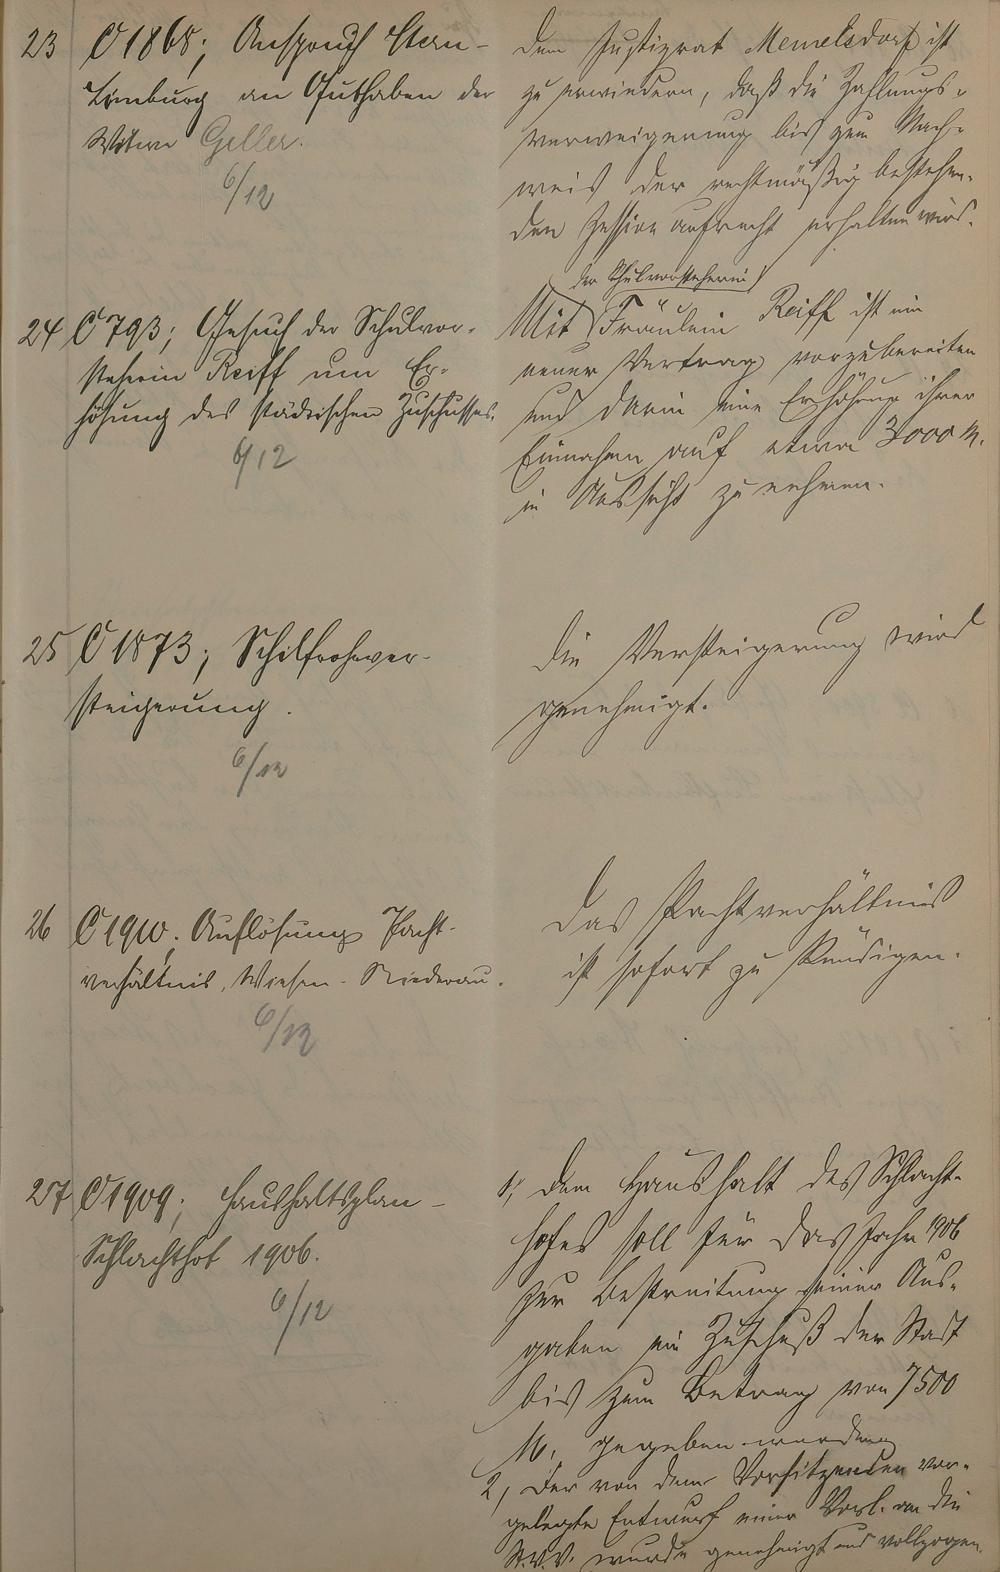 23 C 1868; Anspruch Stern-
Limburg an Guthaben der
Witwe Geller.
6/12
Dem Justizrat Memelsdorf ist
zu erwiedern, daß die Zahlungs-
verweigerung bis zum Nach-
weis der rechtmäßig bestehen-
den Zession aufrecht erhalten wird.
24 C 793; Gesuch der Schulvor-
steherin Reiff um Er-
höhung des städtischen Zuschusses.
6/12
der Schulvorsteherin
Mit Fräulein Reiff ist ein
neuer Vertrag vorzubereiten
und darin eine Erhöhung ihrer
Einnahmen auf etwa 3000 M.
in Aussicht zu nehmen.
25 C 1873; Schilfrohrver-
steigerung.
6/12
Die Versteigerung wird
genehmigt.
26 C 1910. Auflösung Pacht-
verhältnis, Wiesen-Niederau.
6/12
Das Pachtverhältnis
ist sofort zu kündigen.
27 C 1909; Haushaltsplan-
Schlachthof 1906.
6/12
1, Dem Haushalt des Schlacht-
hofes soll für das Jahr 1906
zur Bestreitung seiner Aus-
gaben ein Zuschuß der Stadt
bis zum Betrag von 7500
M. gegeben werden
2, Der von dem Vorsitzenden vor-
gelegte Entwurf einer Vorl. an die
St.V.V. wurde genehmigt und vollzogen.